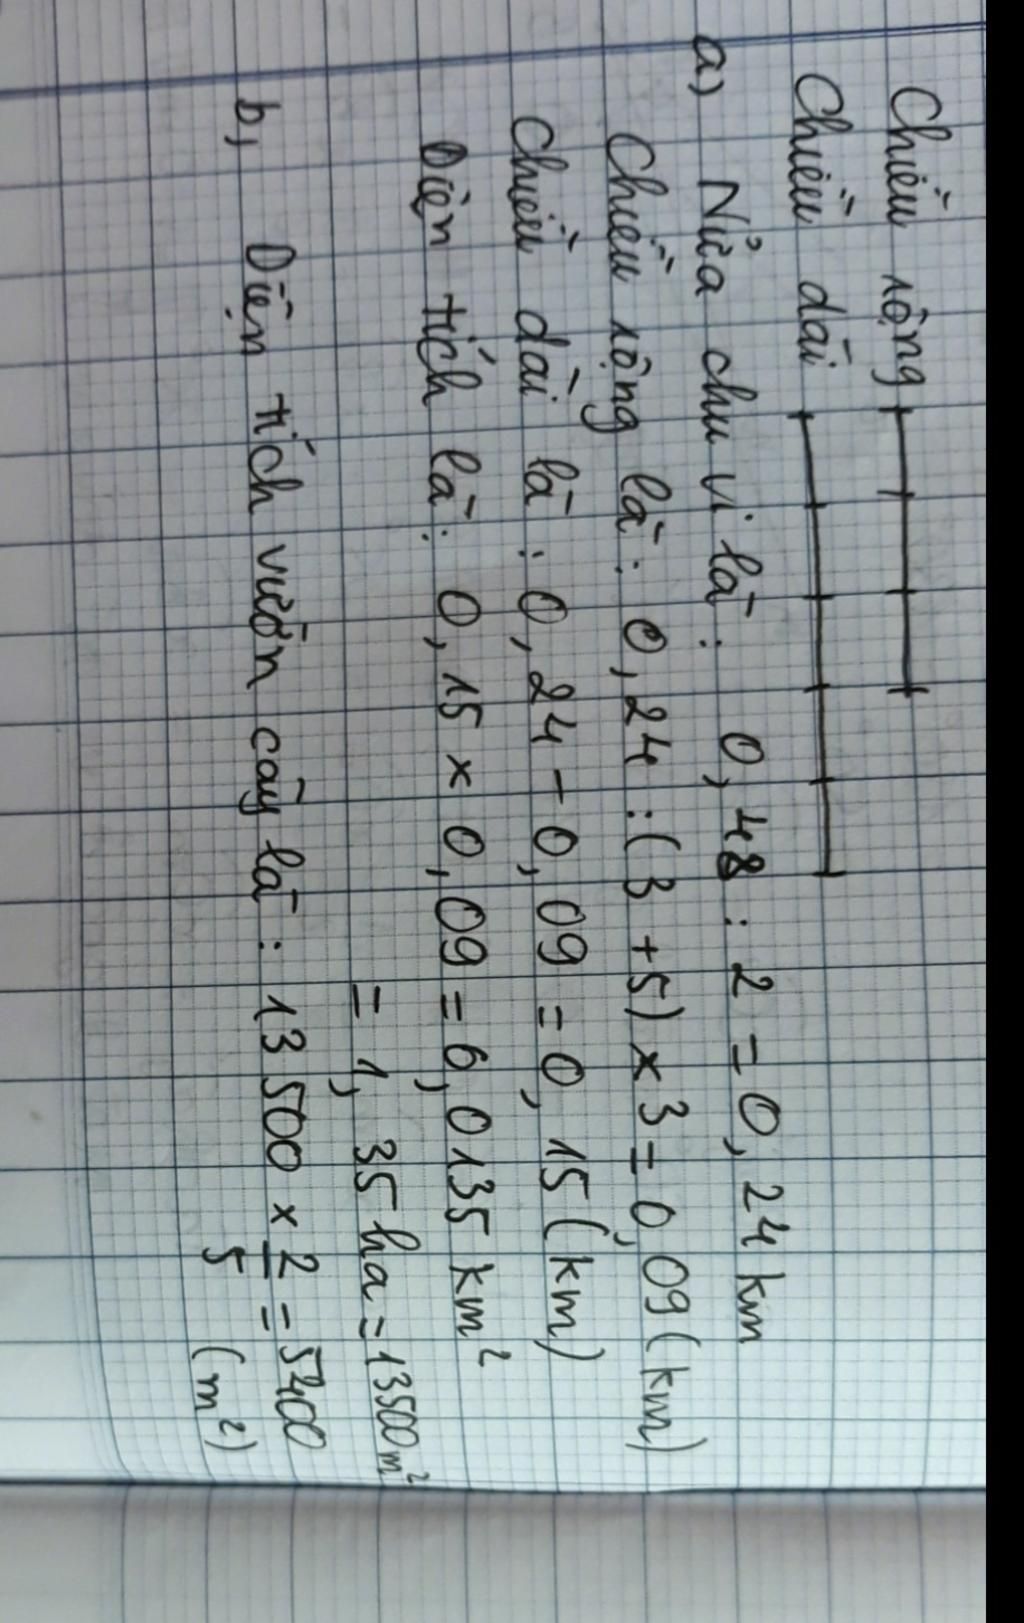 Chiều rộng
Chiều dài
a) Nửa chu vi là : 0,48 : 2 = 0,24 km
Chiều rộng là : 0,24 : (3 + 5) x 3 = 0,09 (km)
Chiều dài là : 0,24 - 0,09 = 0,15 (km)
Diện tích là : 0,15 x 0,09 = 0,0135 km²
= 1,35 ha = 13500 m²
b, Diện tích vườn cây là : 13500 x 2/5 = 5400
(m²)